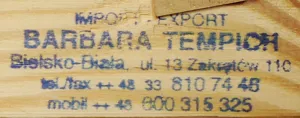 IMPORT - EXPORT
BARBARA TEMPICH
Bielsko-Biała, ul. 13 Zakrętów 110
tel./fax ++ 48 33 810 74 48
mobil ++ 48 600 315 325